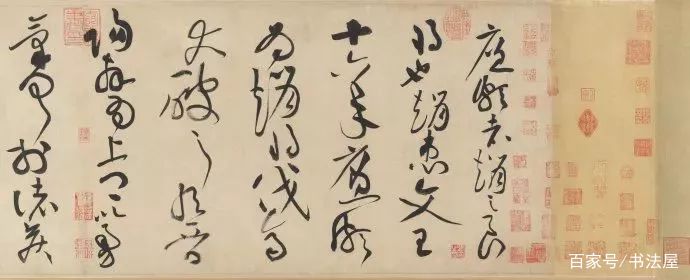 廉頗者趙之良
將也趙惠文王
十六年廉頗
為趙將伐齊
大破之取晉
陽拜為上卿以勇
氣聞於諸侯
百家号/书法屋